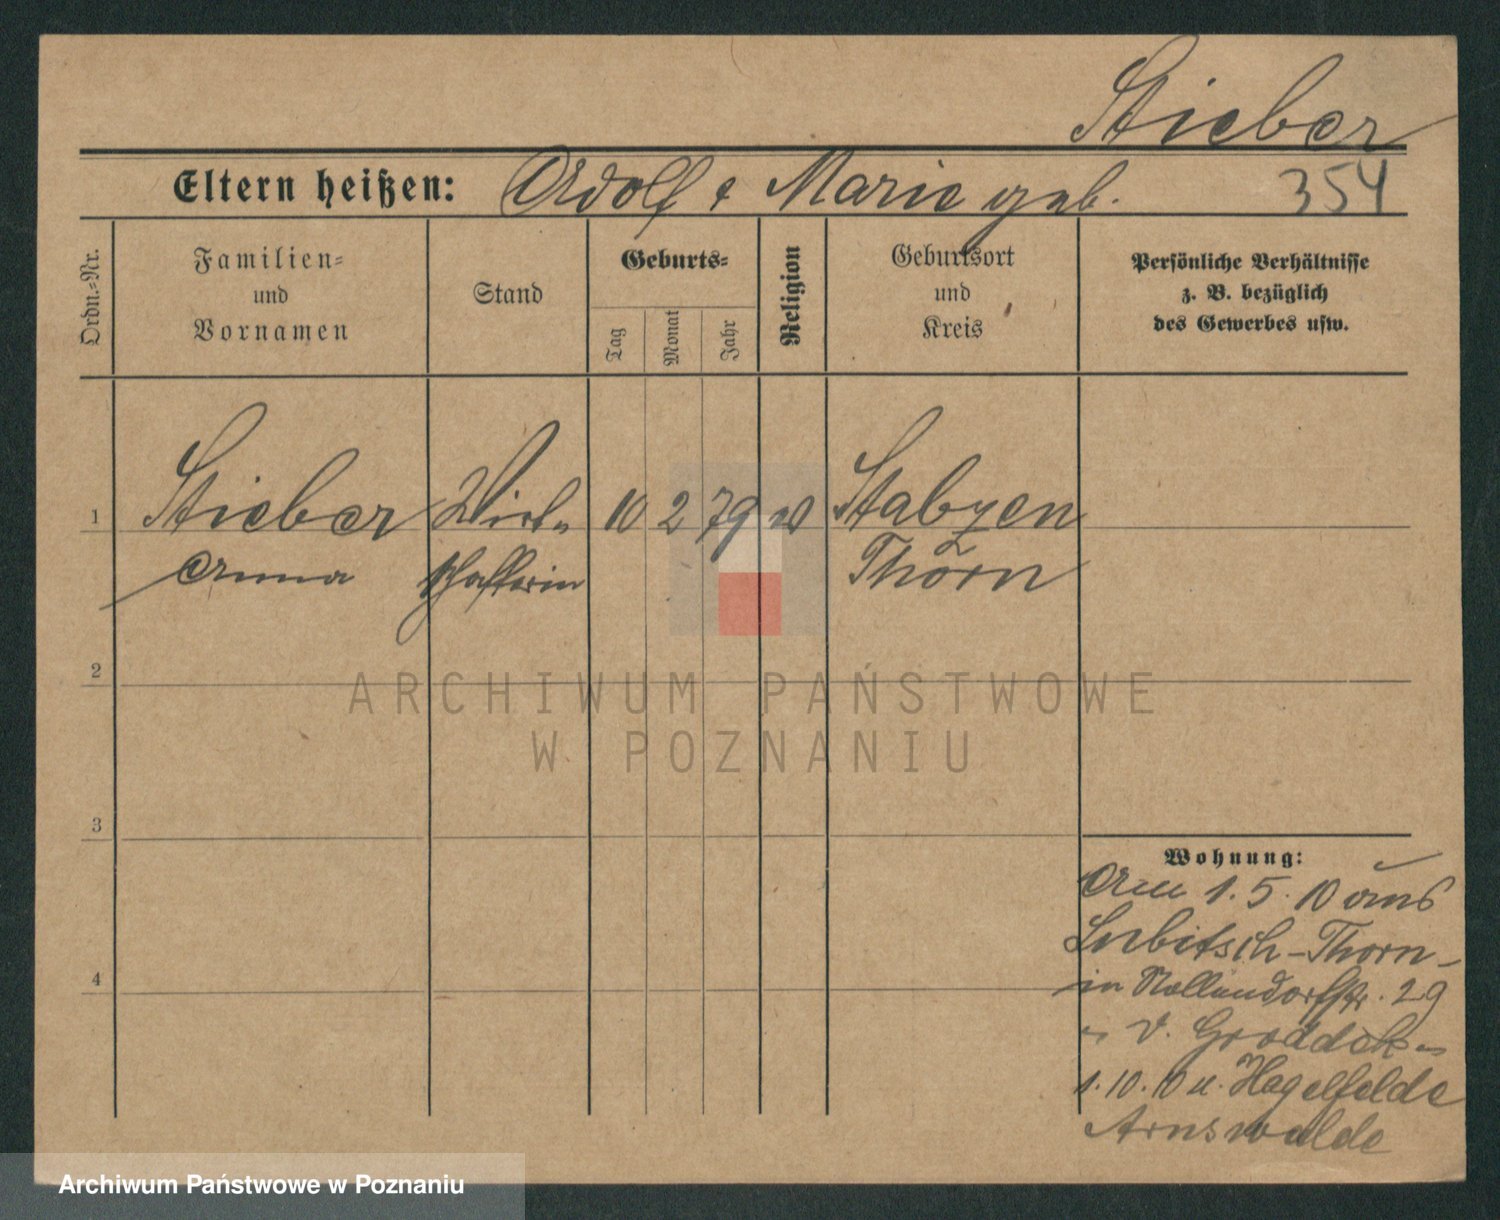 Stieber
Eltern heißen: Adolf & Marie geb. 354
Ordn.-Nr.
Familien-
und
Vornamen
Stand
Geburts-
Tag
Monat
Jahr
Religion
Geburtsort
und
Kreis
Persönliche Verhältnisse
z. B. bezüglich
des Gewerbes usw.
1 Stieber Wirt- 10 2 79 Stabyen
Anna schafterin Thorn
2
ARCHIWUM PAŃSTWOWE
W POZNANIU
3
Wohnung:
Am 1.5.10 aus
Lubitsch-Thorn-
in Nollendorfstr. 29
v. Groddek
1.10.10 n. Hagelfelde
Arnswalde
4
Archiwum Państwowe w Poznaniu